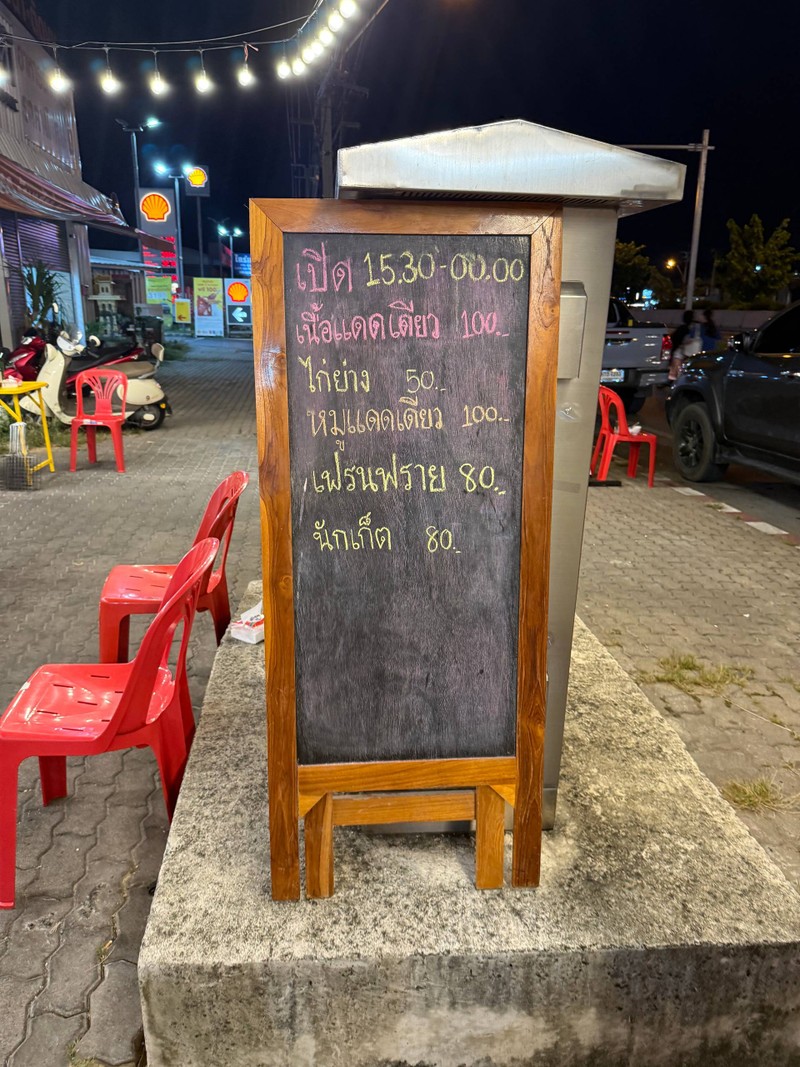 เปิด 15.30-00.00
เนื้อแดดเดียว 100.-
ไก่ย่าง 50.-
หมูแดดเดียว 100.-
เฟรนฟราย 80.-
นักเก็ต 80.-